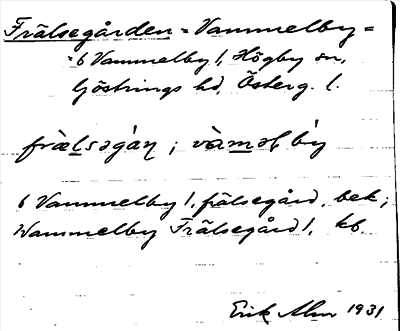 Frälsegården = Vammelby =
= 6 Vammelby /, Högby sn,
Göstrings hd, Österg. l.
frälsəgån ; vàməl by
6 Vammelby /, frälsegård, bek;
Wammelby Frälsegård /, kb.
Erik Alm 1931